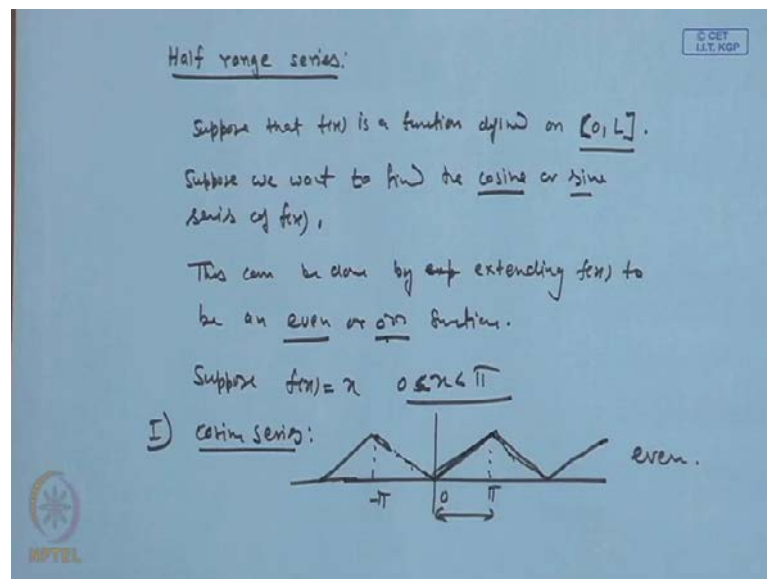 © CET
I.I.T. KGP
Half range series:
Suppose that f(x) is a function defined on [0, L].
Suppose we want to find the cosine or sine
series of f(x),
This can be done by exp extending f(x) to
be an even or odd function.
Suppose f(x) = x 0 ≤ x < π
I) cosine series:
even.
-π 0 π
NPTEL